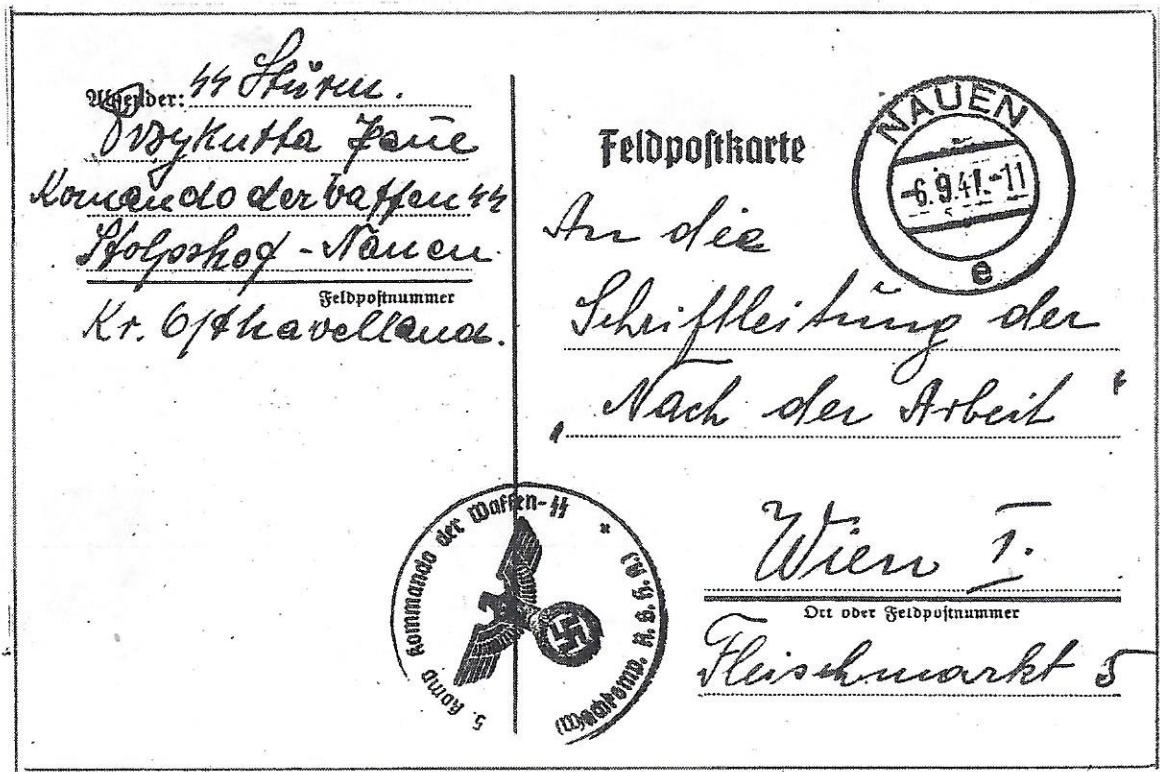 Absender: ᛋᛋ Sturm.
Przykutta
Komando der Waffen ᛋᛋ
Stolpshof - Nauen
Feldpostnummer
Kr. Osthavelland.
Feldpostkarte
NAUEN
-6.9.41.-11
e
An die
Schriftleitung der
„Nach der Arbeit“
Wien I.
Ort oder Feldpostnummer
Fleischmarkt 5
5. Komp Kommando der Waffen-ᛋᛋ *
(Wachkomp.